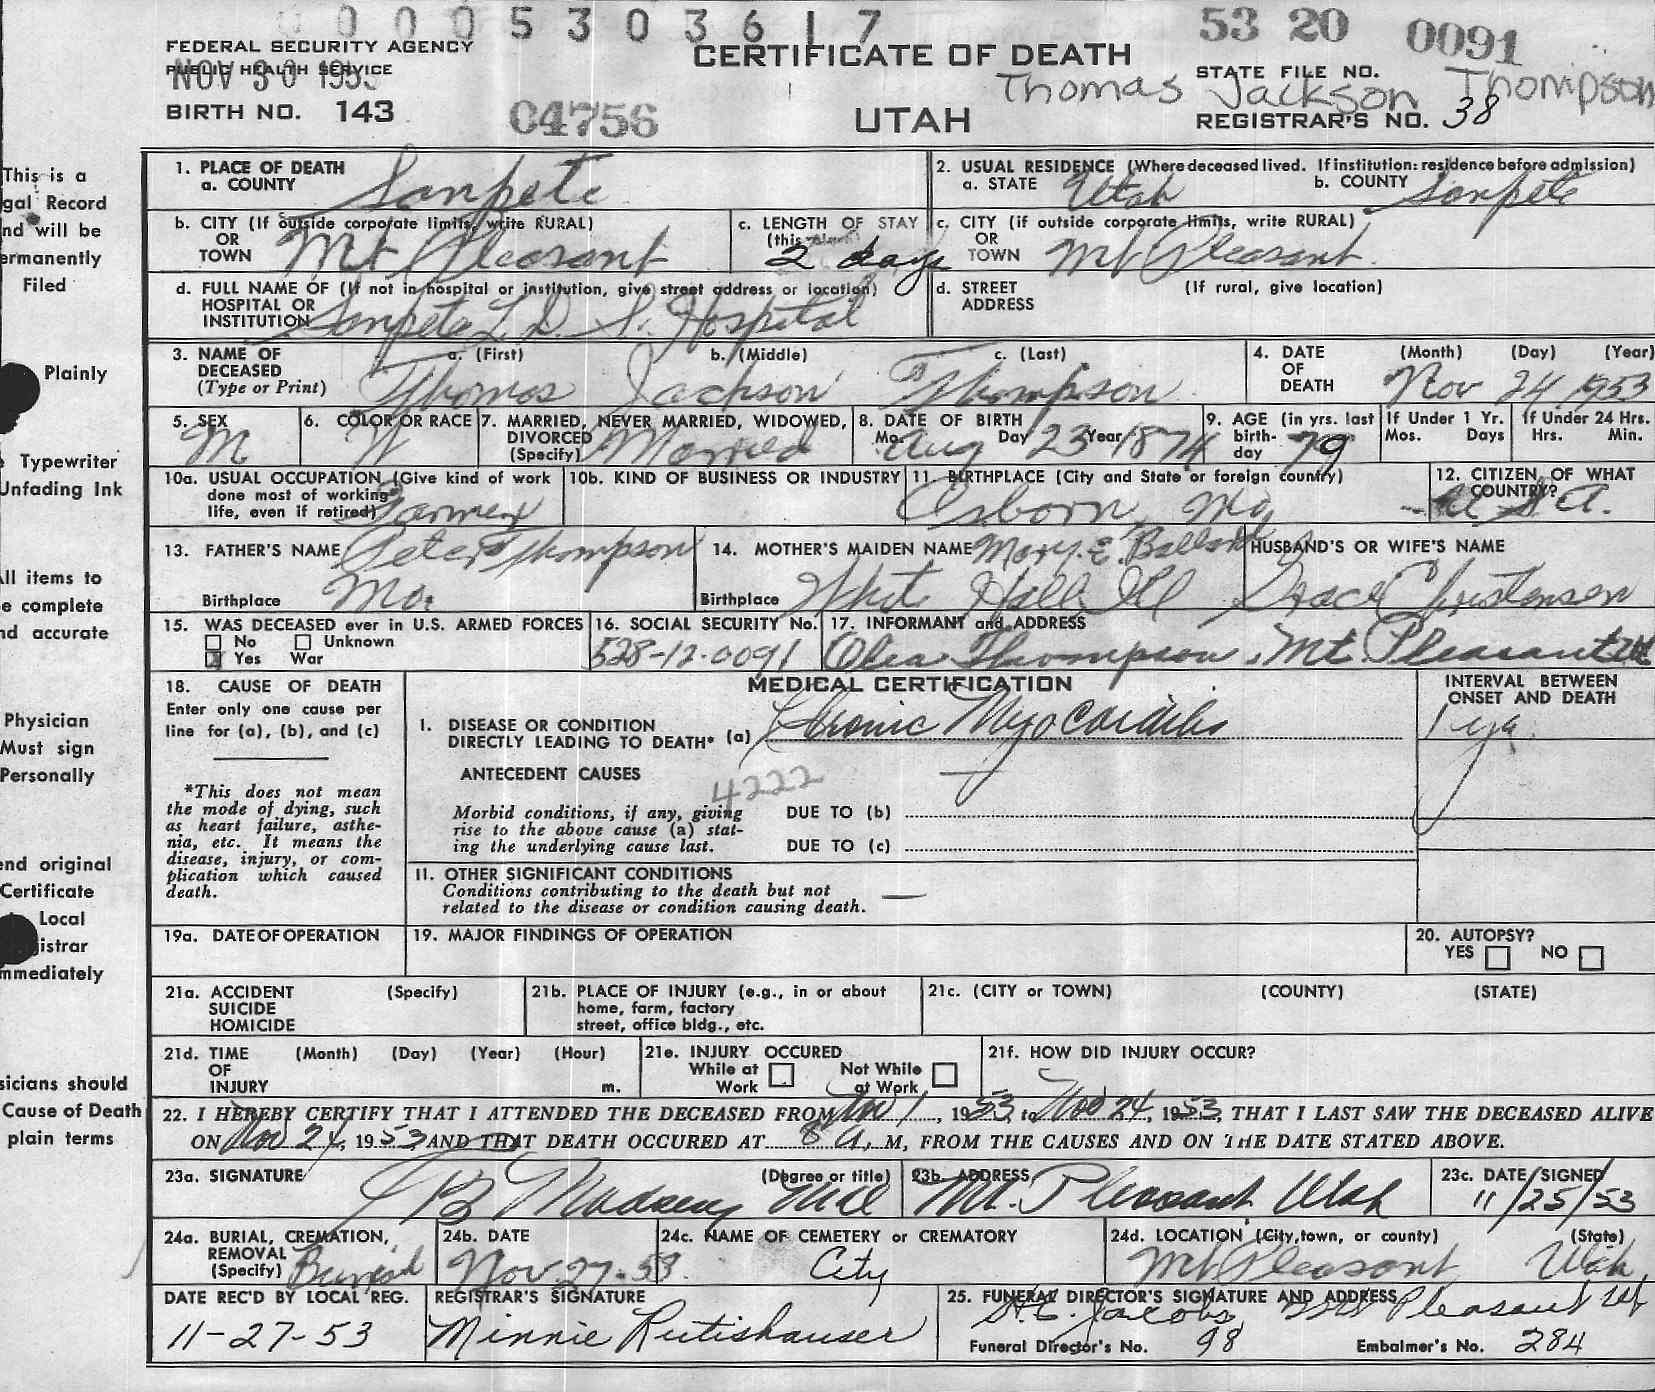 0 0 0 5 3 0 3 6 1 7
53 20 0091
FEDERAL SECURITY AGENCY
PUBLIC HEALTH SERVICE
NOV 30 1953
BIRTH NO. 143
04756
CERTIFICATE OF DEATH
UTAH
Thomas Jackson Thompson
STATE FILE NO.
REGISTRAR'S NO. 38
This is a
gal Record
nd will be
ermanently
Filed
Plainly
Typewriter
Unfading Ink
All items to
e complete
nd accurate
Physician
Must sign
Personally
end original
Certificate
Local
gistrar
mmediately
sicians should
Cause of Death
plain terms
1. PLACE OF DEATH
a. COUNTY Sanpete
2. USUAL RESIDENCE (Where deceased lived. If institution: residence before admission)
a. STATE Utah b. COUNTY Sanpete
b. CITY (If outside corporate limits, write RURAL)
OR
TOWN Mt Pleasant
c. LENGTH OF STAY
(this
2 days
c. CITY (if outside corporate limits, write RURAL)
OR
TOWN Mt Pleasant
d. FULL NAME OF (If not in hospital or institution, give street address or location)
HOSPITAL OR
INSTITUTION Sanpete L. D. S. Hospital
d. STREET
ADDRESS
(If rural, give location)
3. NAME OF
DECEASED
(Type or Print)
a. (First) b. (Middle) c. (Last)
Thomas Jackson Thompson
4. DATE
OF
DEATH
(Month) (Day) (Year)
Nov 24 1953
5. SEX
M
6. COLOR OR RACE
W
7. MARRIED, NEVER MARRIED, WIDOWED,
DIVORCED
(Specify) Married
8. DATE OF BIRTH
Mo. Aug Day 23 Year 1874
9. AGE (in yrs. last
birth-
day 79
If Under 1 Yr.
Mos. Days
If Under 24 Hrs.
Hrs. Min.
10a. USUAL OCCUPATION (Give kind of work
done most of working
life, even if retired) Farmer
10b. KIND OF BUSINESS OR INDUSTRY
11. BIRTHPLACE (City and State or foreign country)
Osborn, Mo,
12. CITIZEN OF WHAT
COUNTRY?
U S A.
13. FATHER'S NAME Peter Thompson
Birthplace Mo.
14. MOTHER'S MAIDEN NAME Mary. E. Ballard
Birthplace White Hall Ill
HUSBAND'S OR WIFE'S NAME
Grace Christensen
15. WAS DECEASED ever in U.S. ARMED FORCES
No Unknown
Yes War
16. SOCIAL SECURITY No.
528-12-0091
17. INFORMANT and ADDRESS
Olea Thompson, Mt. Pleasant Ut
18. CAUSE OF DEATH
Enter only one cause per
line for (a), (b), and (c)
*This does not mean
the mode of dying, such
as heart failure, asthe-
nia, etc. It means the
disease, injury, or com-
plication which caused
death.
MEDICAL CERTIFICATION
I. DISEASE OR CONDITION
DIRECTLY LEADING TO DEATH* (a) Chronic Myocarditis
ANTECEDENT CAUSES
4222
Morbid conditions, if any, giving
rise to the above cause (a) stat-
ing the underlying cause last.
DUE TO (b)
DUE TO (c)
11. OTHER SIGNIFICANT CONDITIONS
Conditions contributing to the death but not
related to the disease or condition causing death. —
INTERVAL BETWEEN
ONSET AND DEATH
19a. DATE OF OPERATION
19. MAJOR FINDINGS OF OPERATION
20. AUTOPSY?
YES NO
21a. ACCIDENT (Specify)
SUICIDE
HOMICIDE
21b. PLACE OF INJURY (e.g., in or about
home, farm, factory
street, office bldg., etc.
21c. (CITY or TOWN) (COUNTY) (STATE)
21d. TIME (Month) (Day) (Year) (Hour)
OF
INJURY m.
21e. INJURY OCCURED
While at Work
Not While at Work
21f. HOW DID INJURY OCCUR?
22. I HEREBY CERTIFY THAT I ATTENDED THE DECEASED FROM Nov 1, 1953, to Nov 24, 1953, THAT I LAST SAW THE DECEASED ALIVE
ON Nov 24, 1953 AND THAT DEATH OCCURED AT 8 A. M, FROM THE CAUSES AND ON THE DATE STATED ABOVE.
23a. SIGNATURE (Degree or title)
Madsen Md
23b. ADDRESS
Mt. Pleasant Utah
23c. DATE SIGNED
11/25/53
24a. BURIAL, CREMATION,
REMOVAL
(Specify) Burial
24b. DATE
Nov. 27-53
24c. NAME OF CEMETERY or CREMATORY
City
24d. LOCATION (City, town, or county) (State)
Mt Pleasant Utah
DATE REC'D BY LOCAL REG.
11-27-53
REGISTRAR'S SIGNATURE
Minnie Rutishauser
25. FUNERAL DIRECTOR'S SIGNATURE AND ADDRESS
Jacobs, Mt Pleasant Ut
Funeral Director's No. 98 Embalmer's No. 284